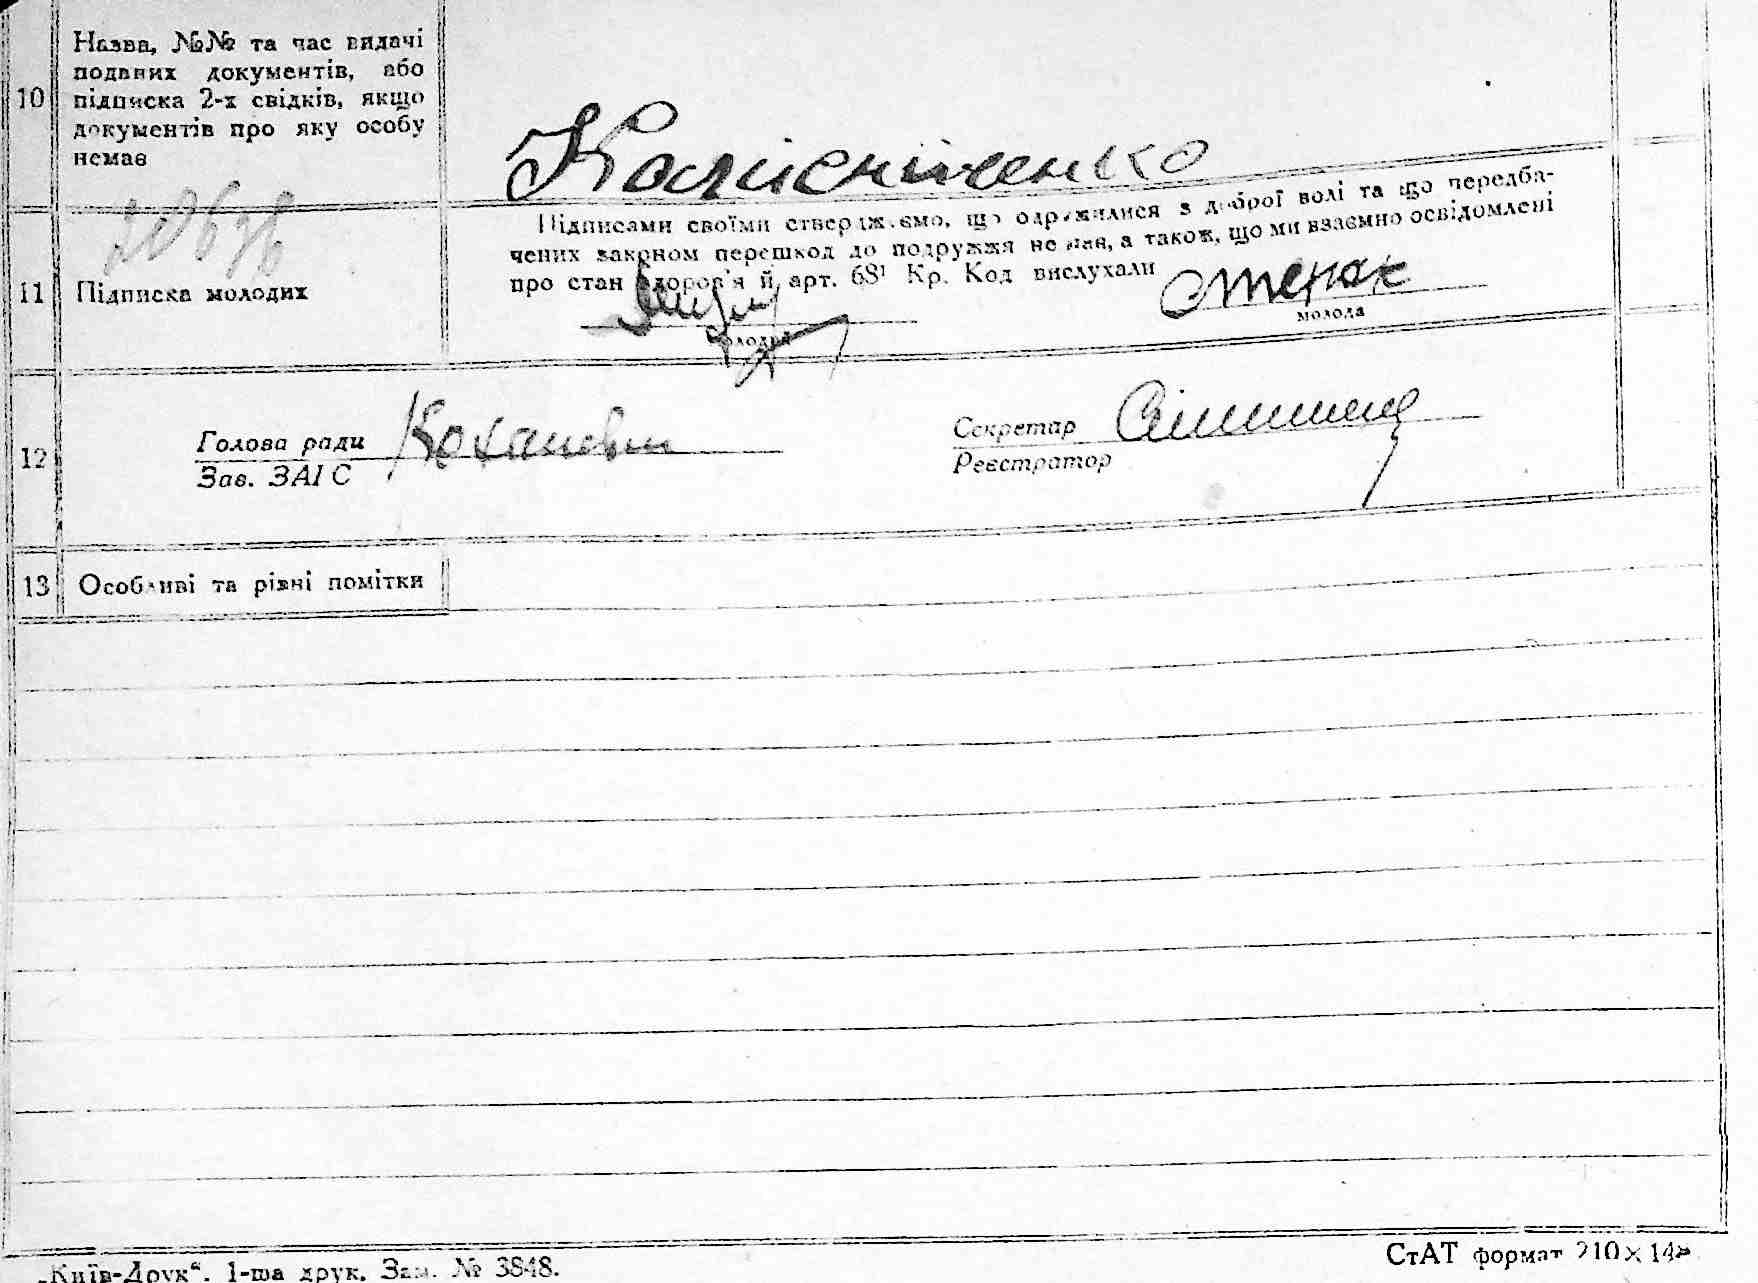 10
Назва, №№ та час видачі
поданих документів, або
підписка 2-х свідків, якщо
документів про яку особу
немає
11
Підписка молодих
Підписами своїми стверджуємо, що одружилися з доброї волі та що передба-
чених законом перешкод до подружжя немає, а також, що ми взаємно освідомлені
про стан здоров'я й арт. 68¹ Кр. Код вислухали
молодий
молода
12
Голова ради
Зав. ЗАГС
Секретар
Реєстратор
13
Особливі та різні помітки
„Київ-Друк“. 1-ша друк. Зам. № 3848.
СтАТ формат 210×148